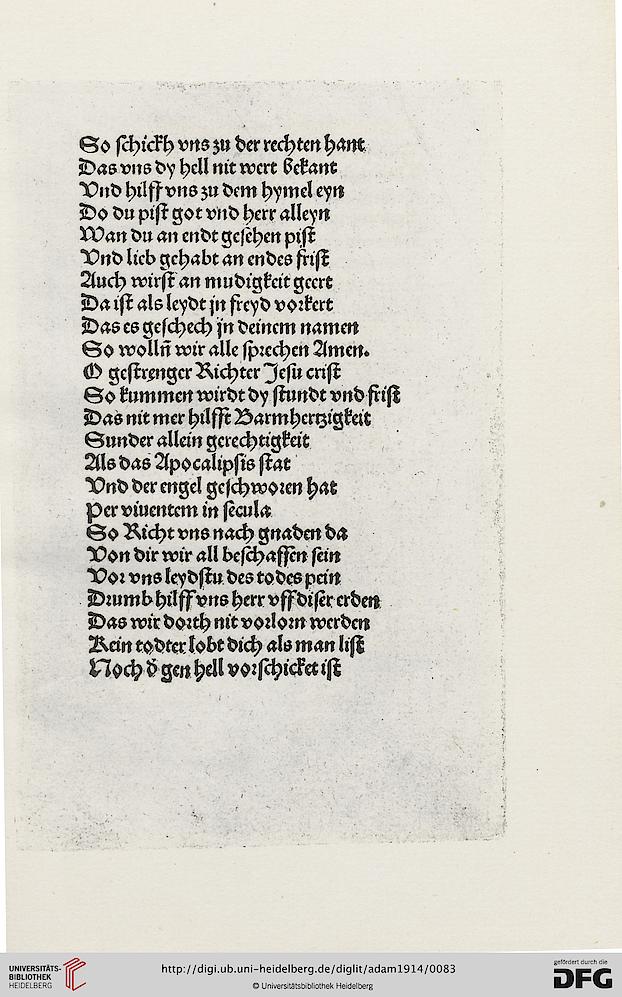 So schickh vns zu der rechten hant
Das vns dy hell nit wert bekant
Vnd hilff vns zu dem hymel eyn
Do du pist got vnd herr alleyn
Wan du an endt gesehen pist
Vnd lieb gehabt an endes frist
Auch wirst an mudigkeit geert
Da ist als leydt jn freyd vorkert
Das es geschech jn deinem namen
So wolln̄ wir alle sprechen Amen.
O gestrenger Richter Jesu crist
So kummen wirdt dy stundt vnd frist
Das nit mer hilfft Barmhertzigkeit
Sunder allein gerechtigkeit
Als das Apocalipsis stat
Vnd der engel geschworen hat
Per viuentem in secula
So Richt vns nach gnaden da
Von dir wir all beschaffen sein
Vor vns leydstu des todes pein
Drumb hilff vns herr vff diser erden
Das wir dorth nit vorlorn werden
Kein todter lobt dich als man list
Noch d̄ gen hell vorschicket ist
UNIVERSITÄTS-
BIBLIOTHEK
HEIDELBERG
http://digi.ub.uni-heidelberg.de/diglit/adam1914/0083
© Universitätsbibliothek Heidelberg
gefördert durch die
DFG